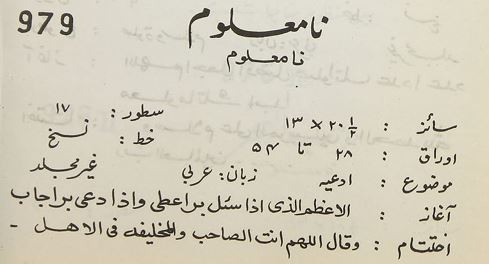 979
نامعلوم
نامعلوم
سائز : ۲۰ ۱/۲ × ۱۳ سطور : ۱۷
اوراق : ۲۸ تا ۵۴ خط : نسخ
موضوع : ادعیہ زبان : عربی غیر مجلد
آغاز : الاعظم الذی اذا سئل بہ اعطی واذا دعی بہ اجاب
اختتام : وقال اللهم انت الصاحب والخلیفه فی الاهل ـ